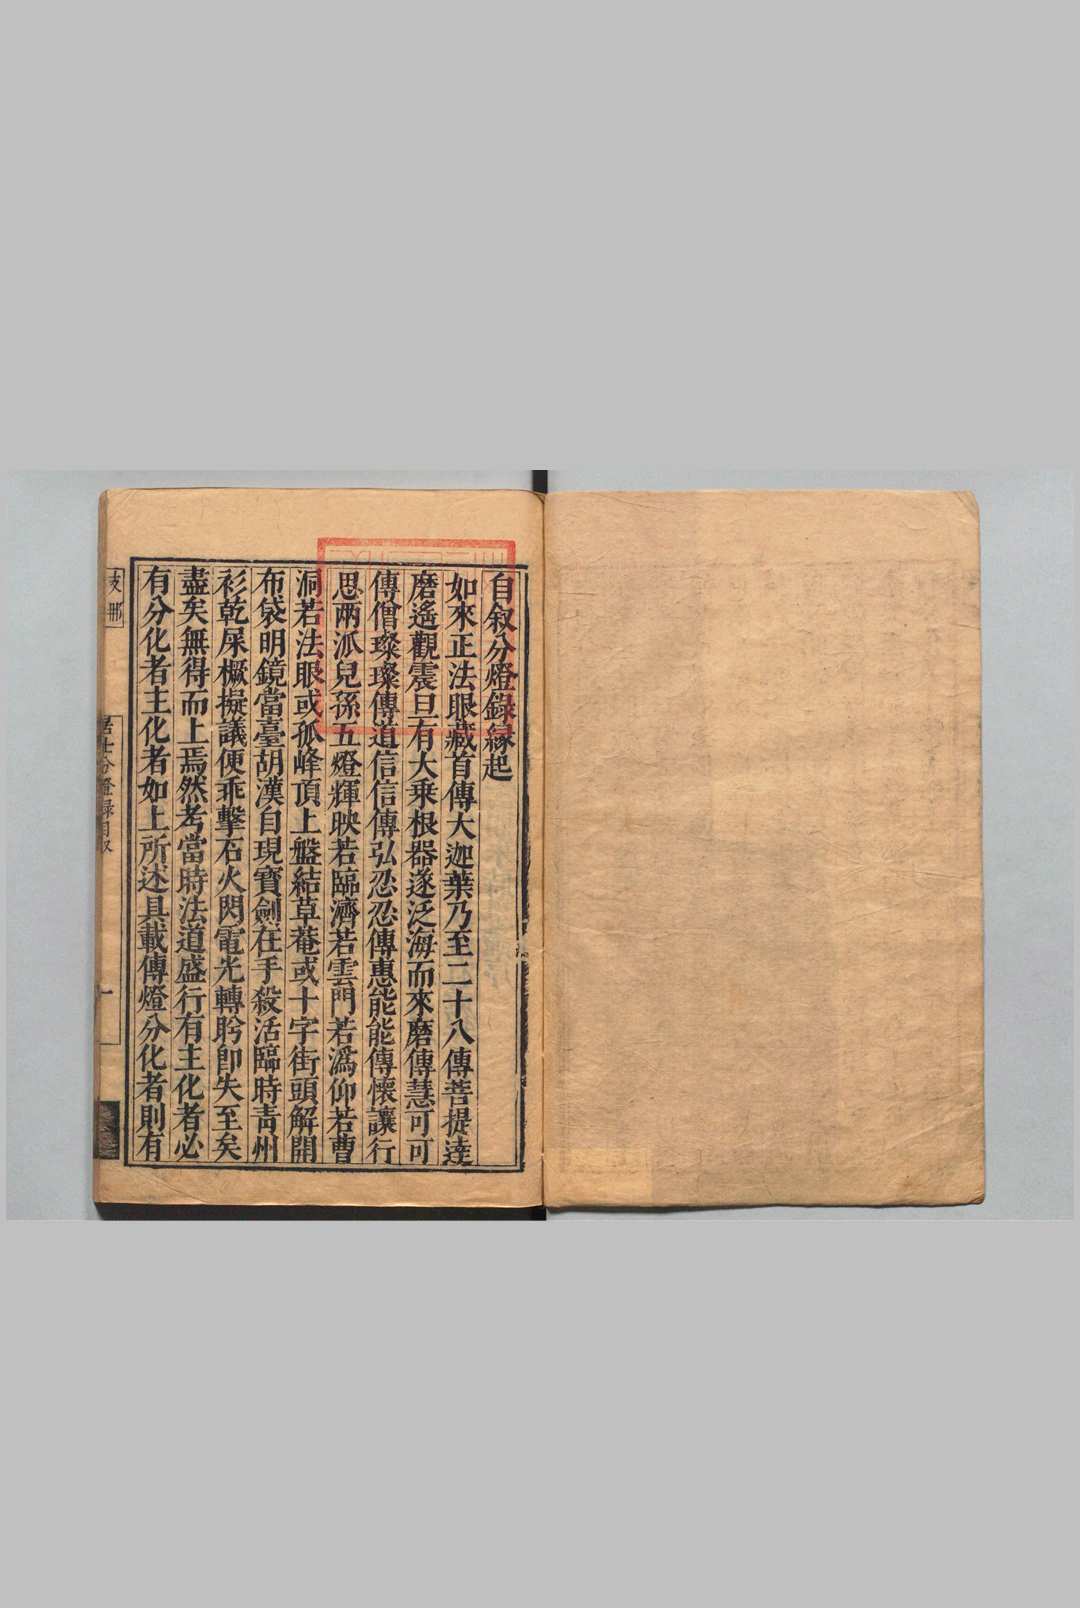 自叙分燈錄緣起
如來正法眼藏首傳大迦葉乃至二十八傳菩提達
磨遙觀震旦有大乗根器遂泛海而來磨傳慧可可
傳僧璨璨傳道信信傳弘忍忍傳惠能能傳懷讓行
思兩派兒孫五燈輝映若臨濟若雲門若溈仰若曹
洞若法眼或孤峰頂上盤結草菴或十字街頭解開
布袋明鏡當臺胡漢自現寶劍在手殺活臨時靑州
衫乾屎橛擬議便乖擊石火閃電光轉盻卽失至矣
盡矣無得而上焉然考當時法道盛行有主化者必
有分化者主化者如上所述具載傳燈分化者則有
支那
居士分燈錄自叙
一